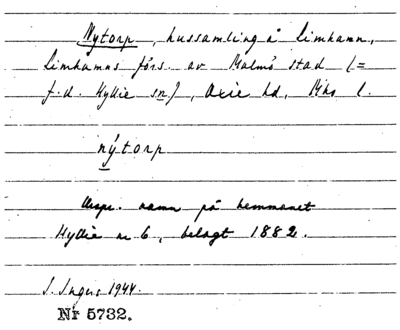 Nytorp, hussamling å Limhamn,
Limhamns förs. av Malmö stad (=
f.d. Hyllie sn), Oxie hd, Mhs l.
nýtorp
Urspr. namn på hemmanet
Hyllie nr 6, belagt 1882.
I. Ingers 1944.
Nr 5732.